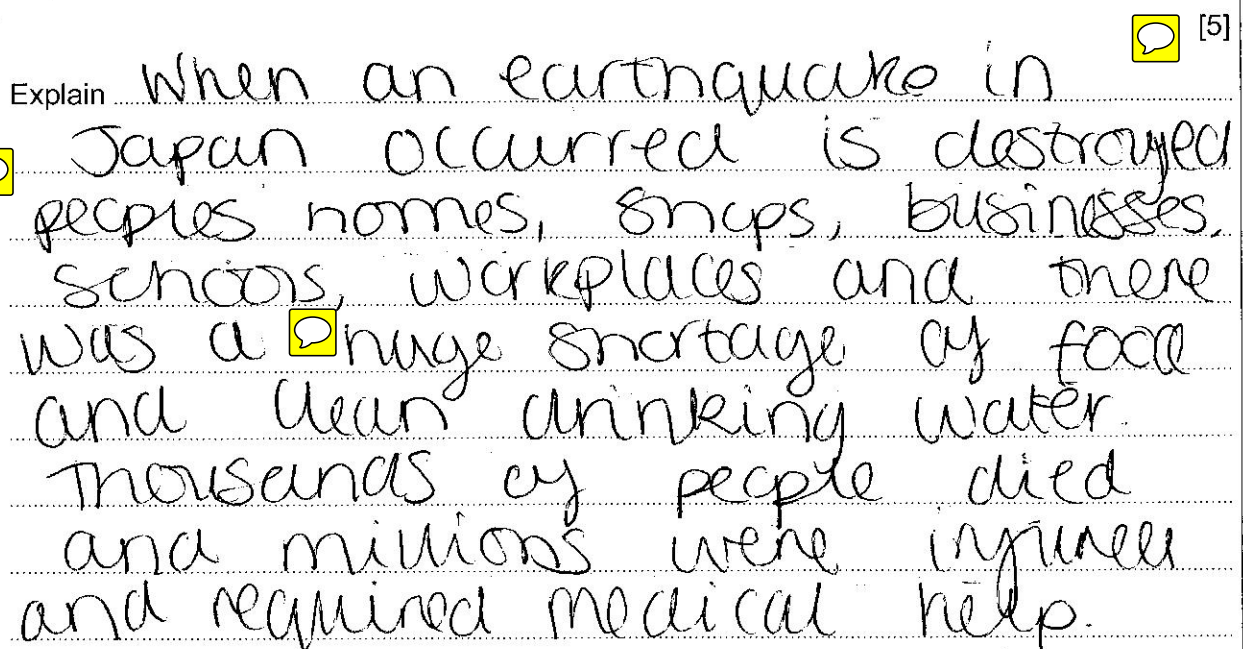 [5]
Explain When an earthquake in
Japan occurred is destroyed
peoples homes, shops, businesses,
schools, workplaces and there
was a huge shortage of food
and clean drinking water.
Thousands of people died
and millions were injured
and required medical help.